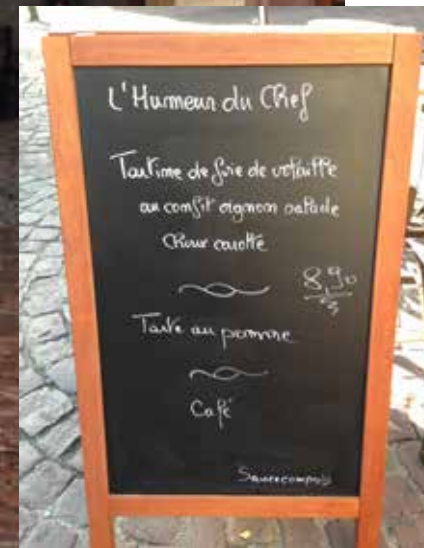 L'Humeur du Chef
Tartime de foie de volaille
au confit oignon salade
Choux carotte
8,90
Tarte au pomme
Café